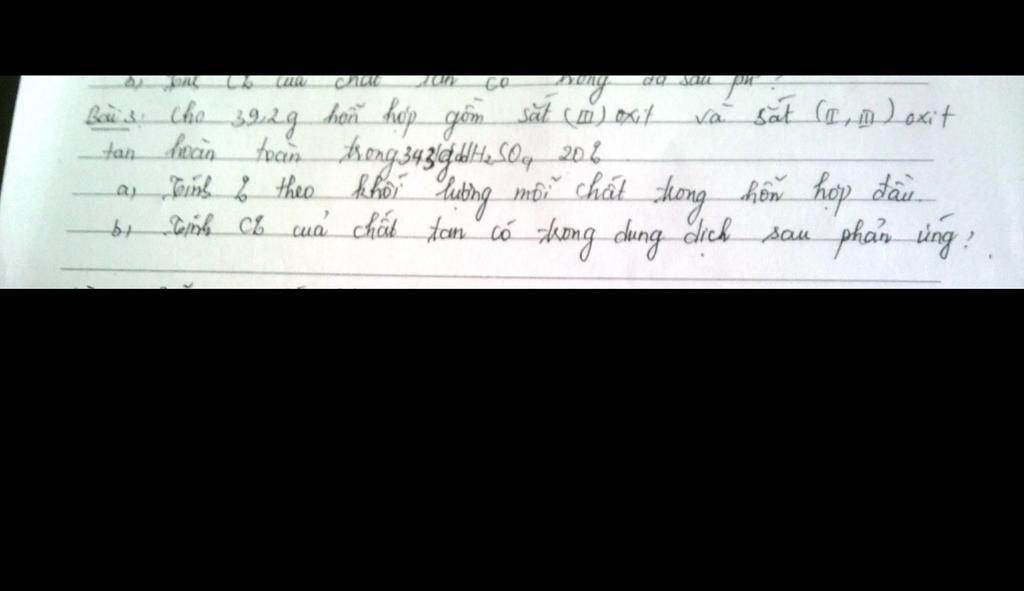 a) Tính C% của chất tan có trong dd sau pư?
Bài 3: Cho 39,2 g hỗn hợp gồm sắt (III) oxit và sắt (II, III) oxit
tan hoàn toàn trong 343g ddH₂SO₄ 20%
a) Tính % theo khối lượng mỗi chất trong hỗn hợp đầu.
b) Tính C% cuả chất tan có trong dung dịch sau phản ứng?